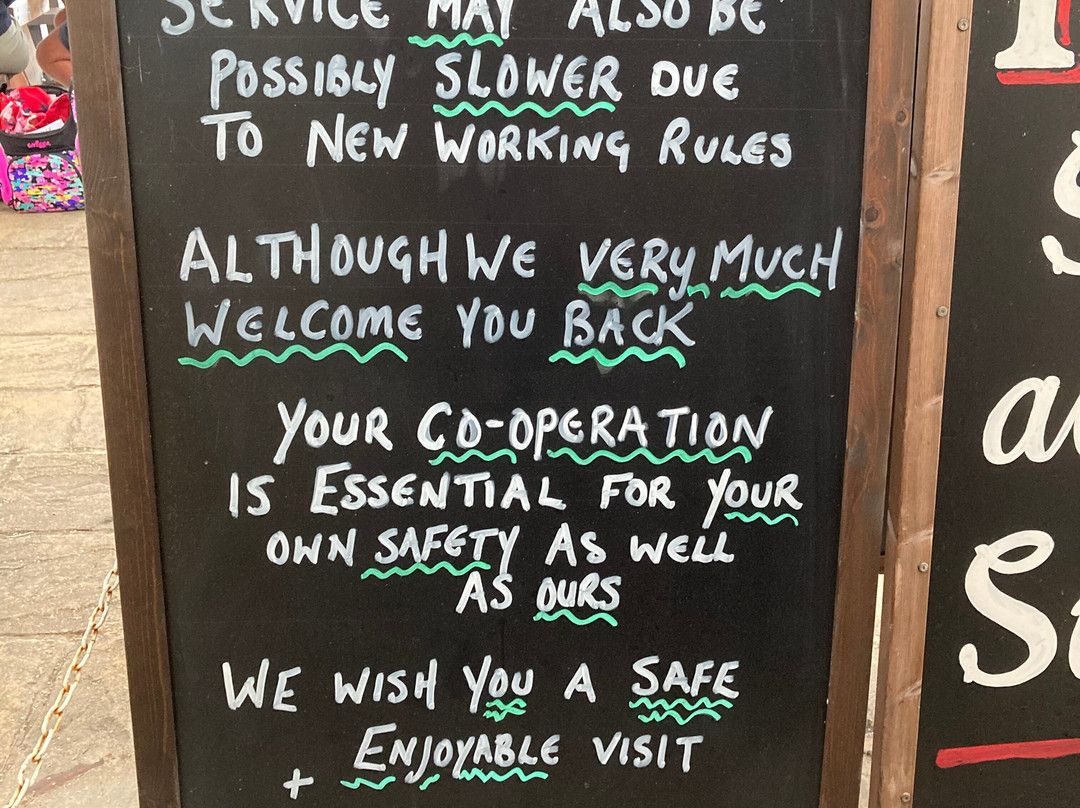 SERVICE MAY ALSO BE
POSSIBLY SLOWER DUE
TO NEW WORKING RULES
ALTHOUGH WE VERY MUCH
WELCOME YOU BACK
YOUR CO-OPERATION
IS ESSENTIAL FOR YOUR
OWN SAFETY AS WELL
AS OURS
WE WISH YOU A SAFE
+ ENJOYABLE VISIT